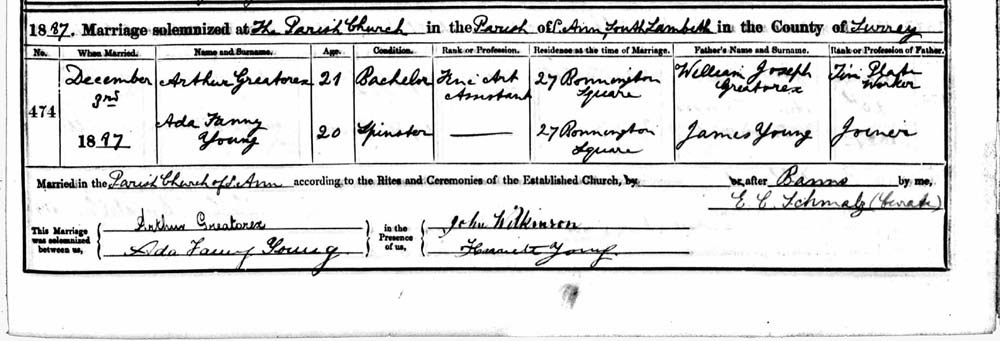 1887. Marriage solemnized at The Parish Church in the Parish of S. Ann, South Lambeth in the County of Surrey
No. When Married. Name and Surname. Age. Condition. Rank or Profession. Residence at the time of Marriage. Father's Name and Surname. Rank or Profession of Father.
474 December 3rd 1887 Arthur Greatorex 21 Bachelor Fine Art Assistant 27 Bonnington Square William Joseph Greatorex Tin Plate Worker
Ada Fanny Young 20 Spinster — 27 Bonnington Square James Young Joiner
Married in the Parish Church of S. Ann according to the Rites and Ceremonies of the Established Church, by or after Banns by me,
E. C. Schmalz (Curate)
This Marriage was solemnized between us, Arthur Greatorex in the Presence of us, John Wilkinson
Ada Fanny Young Young